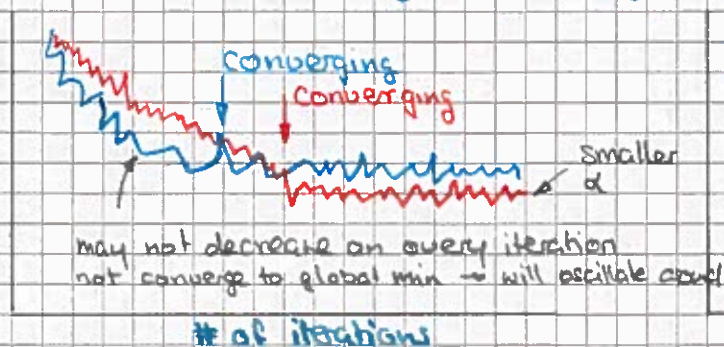 converging
converging
smaller
α
may not decrease on every iteration
not converge to global min → will oscillate
# of iterations